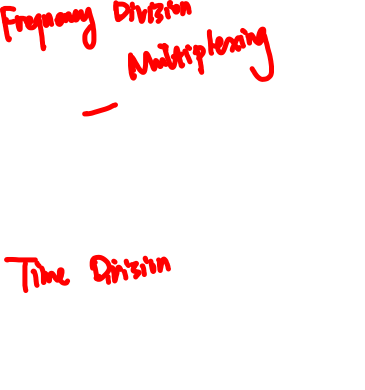 Frequency Division
Multiplexing
-
Time Division